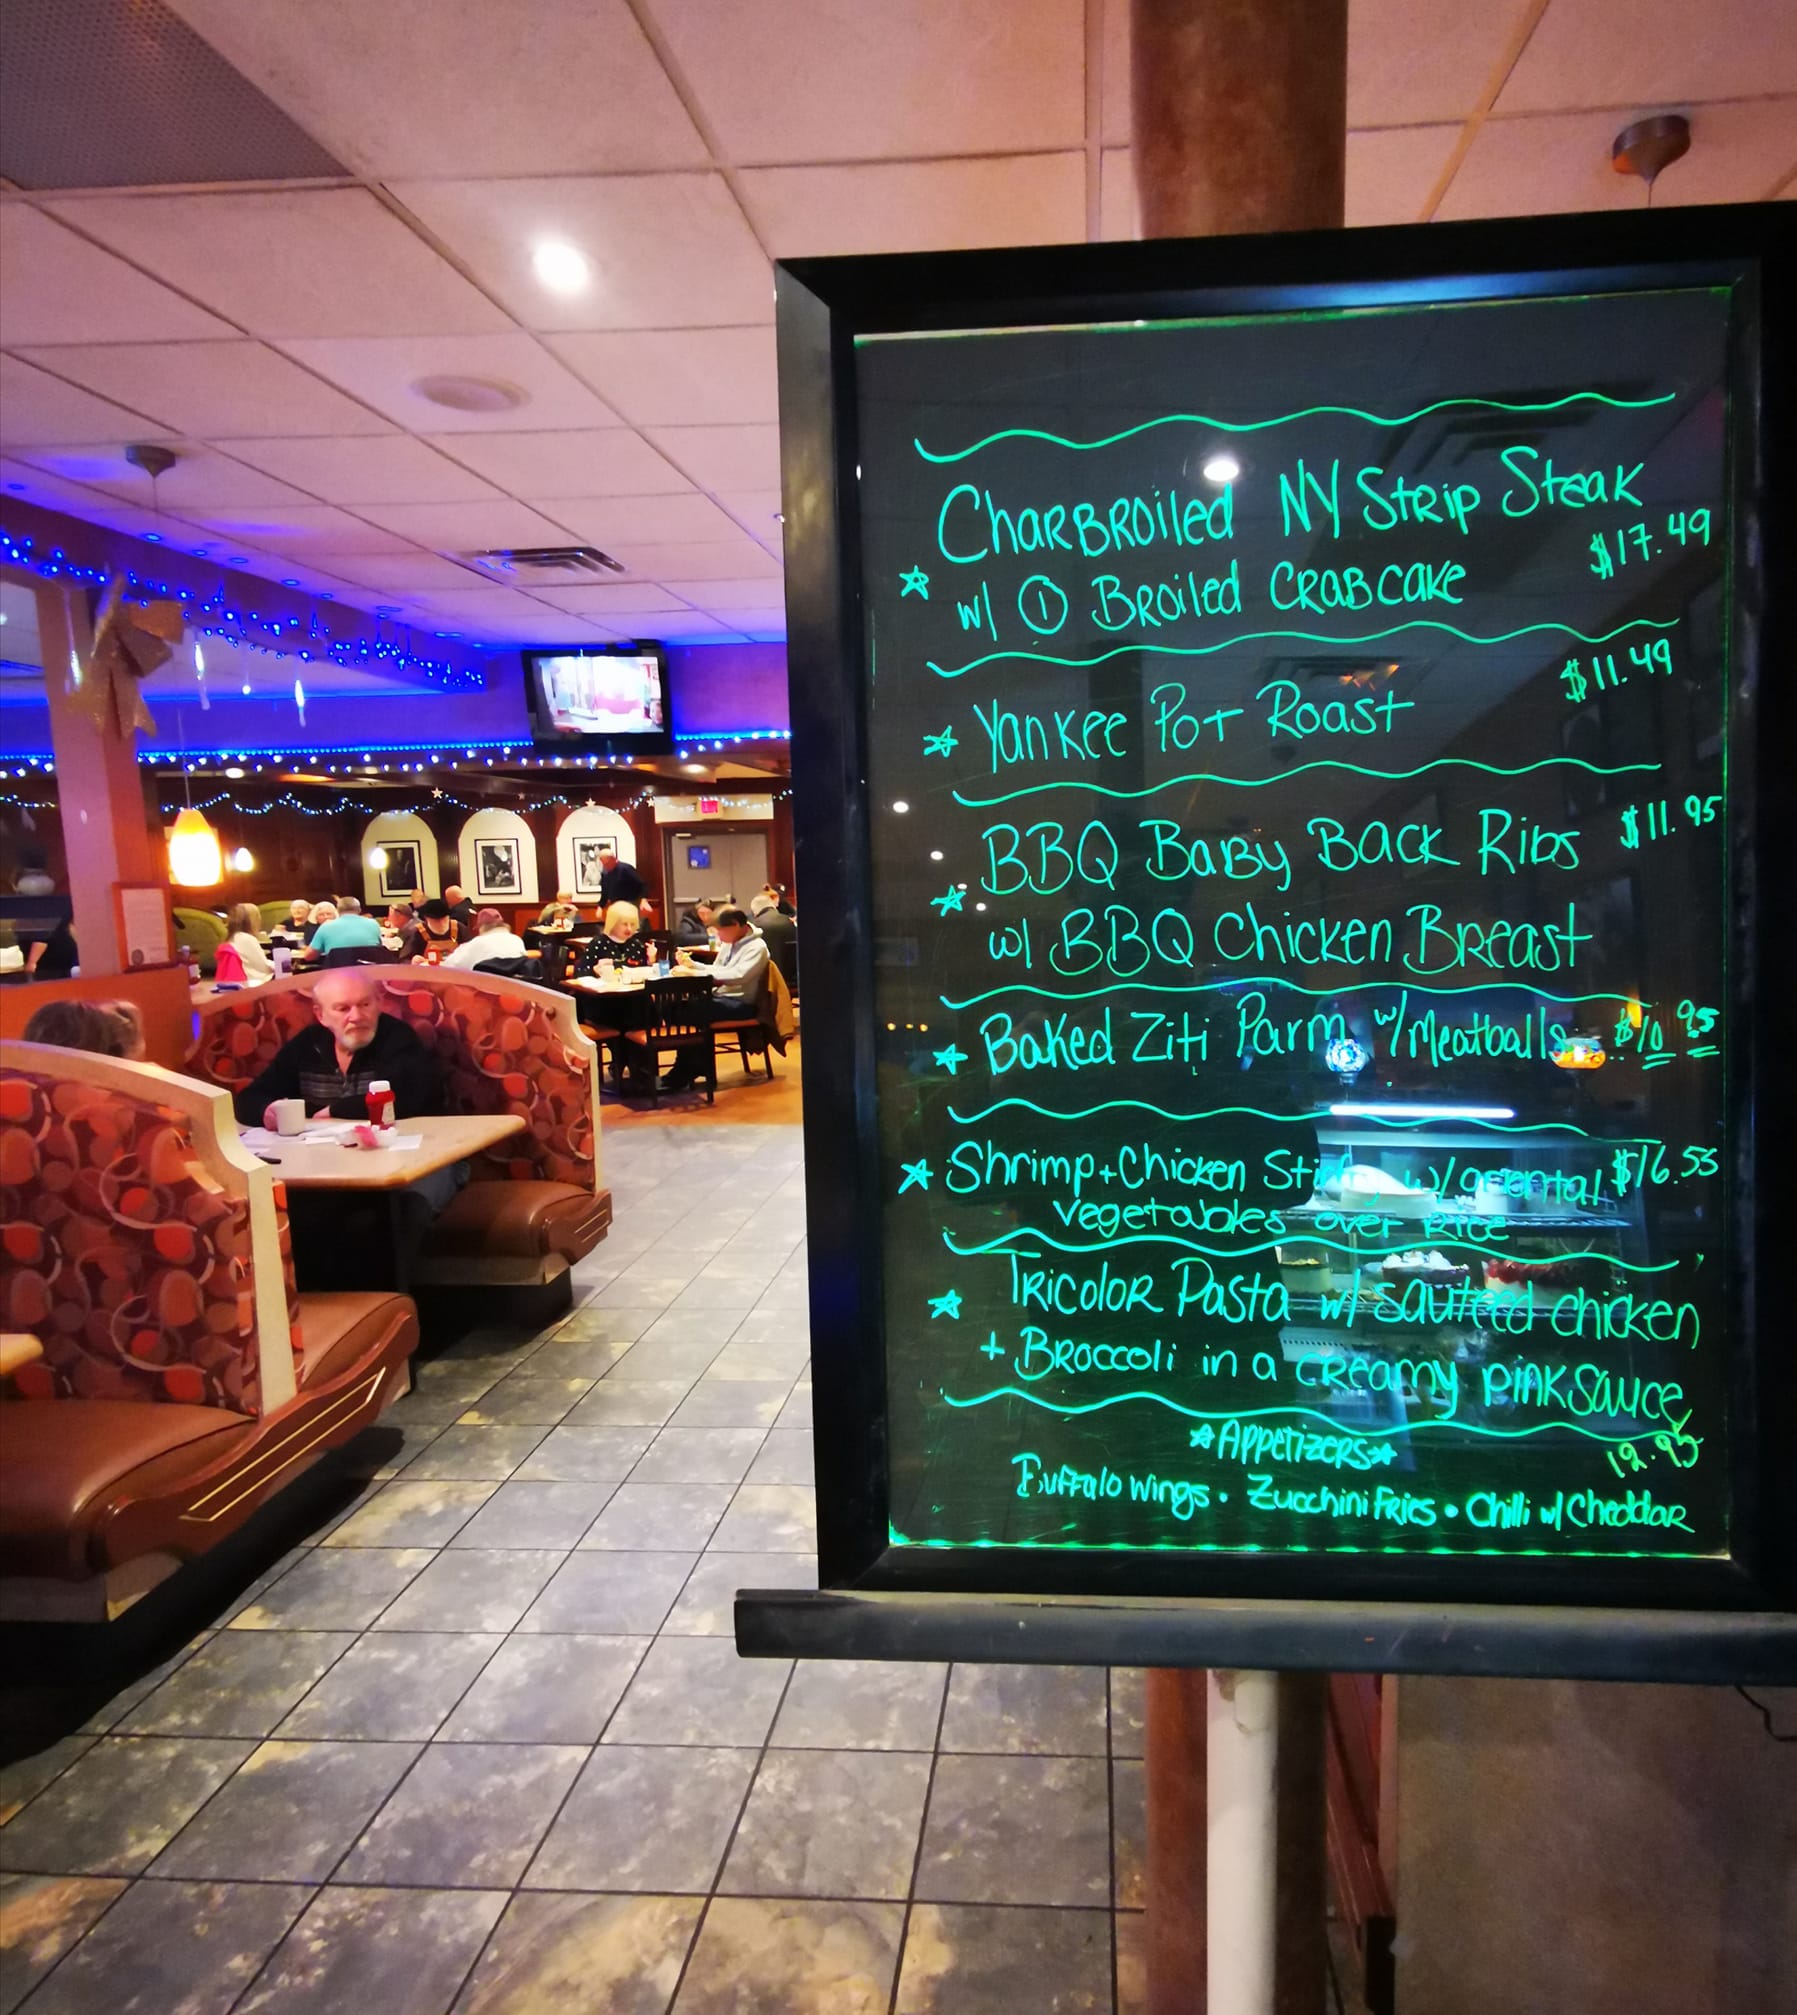 Charbroiled NY Strip Steak
$17.49
☆ w/ ① Broiled Crabcake
$11.49
☆ Yankee Pot Roast
BBQ Baby Back Ribs $11.95
☆ w/ BBQ Chicken Breast
☆ Baked Ziti Parm w/Meatballs $10.95
☆ Shrimp + Chicken w/ oriental $16.55
vegetables over Rice
☆ Tricolor Pasta w/ sauteed chicken
+ Broccoli in a creamy pink sauce
12.95
☆ Appetizers ☆
Buffalo wings • Zucchini Fries • Chilli w/ Cheddar